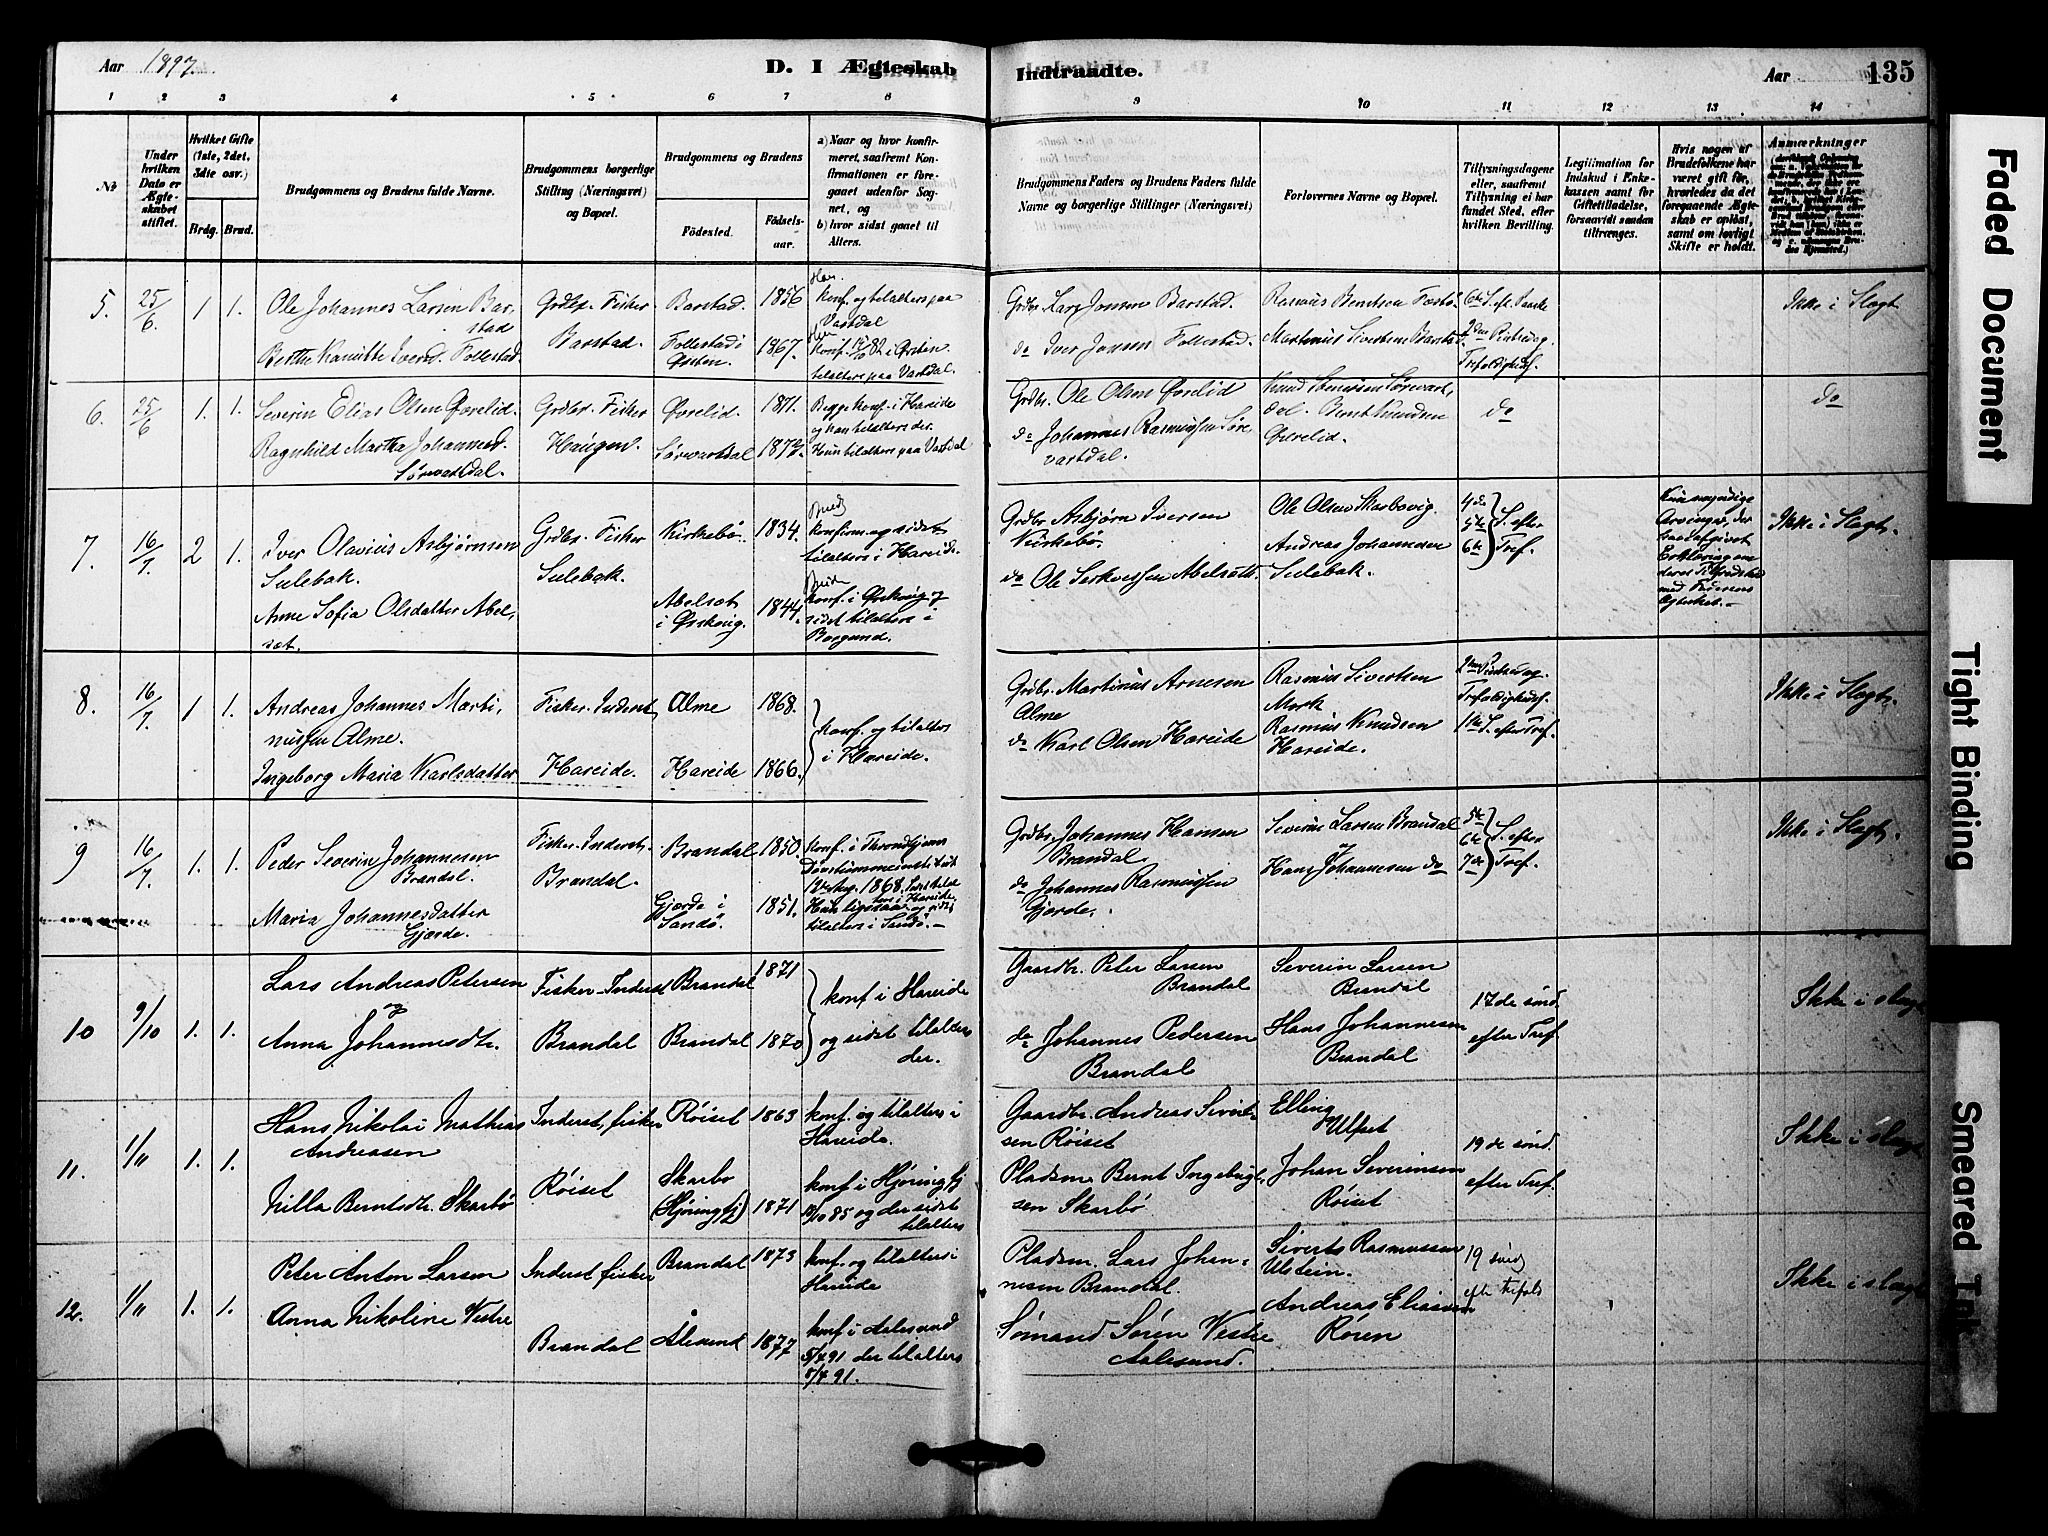 Aar 1897.
D. I Ægteskab Indtraadte.
Aar 135
1 2 3 4 5 6 7 8 9 10 11 12 13 14
No
Under hvilken Dato er Ægteskabet stiftet.
Hvilket Gifte (1ste, 2det, 3die osv.)
Brdg. Brud.
Brudgommens og Brudens fulde Navne.
Brudgommens borgerlige Stilling (Næringsvei) og Bopæl.
Brudgommens og Brudens
Födested. Födselsaar.
a) Naar og hvor konfirmeret, saafremt Konfirmationen er foregaaet udenfor Sognet, og
b) hvor sidst gaaet til Alters.
Brudgommens Faders og Brudens Faders fulde Navne og borgerlige Stillinger (Næringsvei)
Forlovernes Navne og Bopæl.
Tillysningsdagene eller, saafremt Tillysning ei har fundet Sted, efter hvilken Bevilling.
Legitimation for Indskud i Enkekassen samt for Giftetilladelse, forsaavidt saadan tiltrænges.
Hvis nogen af Brudefolkene har været gift för, hvorledes da det foregaaende Ægteskab er oplöst, samt om lovligt Skifte er holdt.
Anmærkninger
5. 25/6. 1 1.
Ole Johannes Larsen Barstad
Berthe Kanutte Iversd. Follestad.
Grdbr. Fisker
Barstad.
Barstad. 1856
Follestad i Ørsten. 1867.
Han. Konf. og tilalters paa Vartdal
Konf. 82 i Ørsten. tilalters paa Vartdal.
Grdbr. Lars Jonsen Barstad.
do Iver Jonsen Follestad.
Rasmus Berntsen
Martinus Sivertsen Barstad.
6te S. eft. Paaske
2den Pintsedag
Trefoldighedsf.
Ikke i Slegt
6. 25/6 1. 1.
Severin Elias Olsen Øvrelid.
Ragnhild Martha Johannesd. Sørevartdal.
Grdbr. Fisker
Haugen.
Øvrelid. 1871.
Sørevartdal 1872.
Begge konf. i Hareide og han tilalters der.
Hun tilalters paa Vartdal
Grdbr. Ole Olsen Øvrelid
do Johannes Rasmussen Sørevartdal.
Knud Sørevartdal. Bernt Knudsen Øvrelid.
do
do
7. 16/7. 2 1.
Iver Olavius Asbjørnsen Sulebak.
Anne Sofia Olsdatter Abelsæt.
Grdbr. Fisker
Sulebak.
Kirkebø. 1834.
Abelsæt i Ørskoug. 1844.
konfirm. og sidst tilalters i Hareide.
Konf. i Ørskoug og sidst tilalters i Borgund.
Grdbr. Asbjørn Iversen Kirkebø.
do Ole
Ole Olsen Skarbøvig.
Andreas Johannesen Sulebak.
4de 5te 6te S. efter Tref.
Arvinger, der har afgivet Erklæring om deres Tilfredshed med Faderens Ægteskab.
Ikke i Slegt.
8. 16/7. 1 1.
Andreas Johannes Martinussen Alme.
Ingeborg Maria Karlsdatter
Fisker. Inderst,
Hareide.
Alme 1868.
Hareide 1866.
Konf. og tilalters i Hareide.
Grdbr. Martinus Arnesen Alme
do Karl Olsen Hareide
Rasmus Sivertsen Mork
Rasmus Knudsen Hareide.
2den Pintsedag
Trefoldighedsf.
1ste S. efter Tref.
Ikke i Slegt.
9 16/7. 1. 1.
Peder Severin Johannesen Brandal.
Maria Johannesdatter Gjærde.
Fisker. Inderst.
Brandal.
Brandal 1850.
Gjærde i Sandø. 1851.
Konf. i Throndhjems Døvstummeinstitut 12te Aug. 1868. Sidst tilalters i Hareide.
Hun ligesaa og sidst tilalters i Sandø.
Grdbr. Johannes Hansen Brandal.
do Johannes Rasmussen Gjærde.
Severin Larsen Brandal
og
Hans Johannesen do
5te 6te 7de S. efter Tref.
Ikke i Slegt.
10 9/10 1. 1.
Lars Andreas Petersen
og
Anna Johannesdtr.
Fisker-Inderst
Brandal
Brandal 1871
Brandal 1870
konf i Hareide og sidste tilalters der.
Gaardbr. Peter Larsen Brandal
do Johannes Pedersen Brandal
Severin Larsen Brandal
Hans Johannesen Brandal
17de sönd. efter Tref.
Ikke i slegt
11. 1/11 1. 1.
Hans Nikolai Mathias Andreasen
Nilla Berntsdtr. Skarbø
Inderst, fisker
Röiset
Röiset 1863
Skarbø (Hjöringfj) 1871
konf. og tilalters i Hareide.
konf i Hjöringfj 85 og der sidste tilalters
Gaardbr. Andreas Sivertsen Röiset
Pladsm. Bernt Ingebrigtsen Skarbø
Elling Ulset
Johan Severinsen Röiset
19de sönd. efter Tref.
Ikke i slegt
12. 1/11 1. 1.
Peter Anton Larsen
Anna Nikoline Vestre
Inderst fisker
Brandal
Brandal 1873
Ålesund 1877
konf. og tilalters i Hareide
konf i Aalesund 5/4 91 der tilalters 5/4 91.
Pladsm. Lars Johannesen Brandal.
Sömand Sören Vestre Aalesund.
Siverts Rasmussen Ulstein.
Andreas Eliassen Rören
19 sönd efter trefold
Ikke i slegt
Faded Document
Tight Binding
Smeared Ink